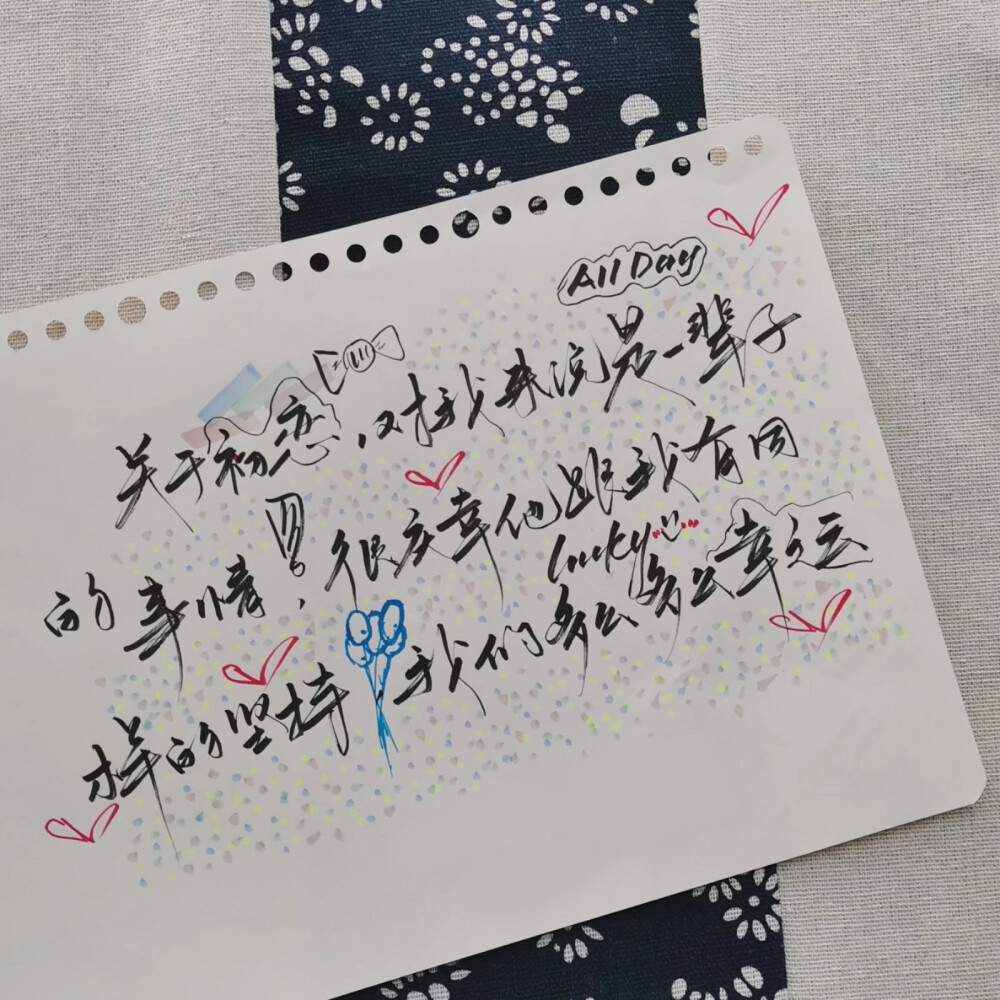 All Day
关于初恋,对我来说是一辈子
的事情,很庆幸他跟我有同
lucky
样的坚持 我们多么多么幸运